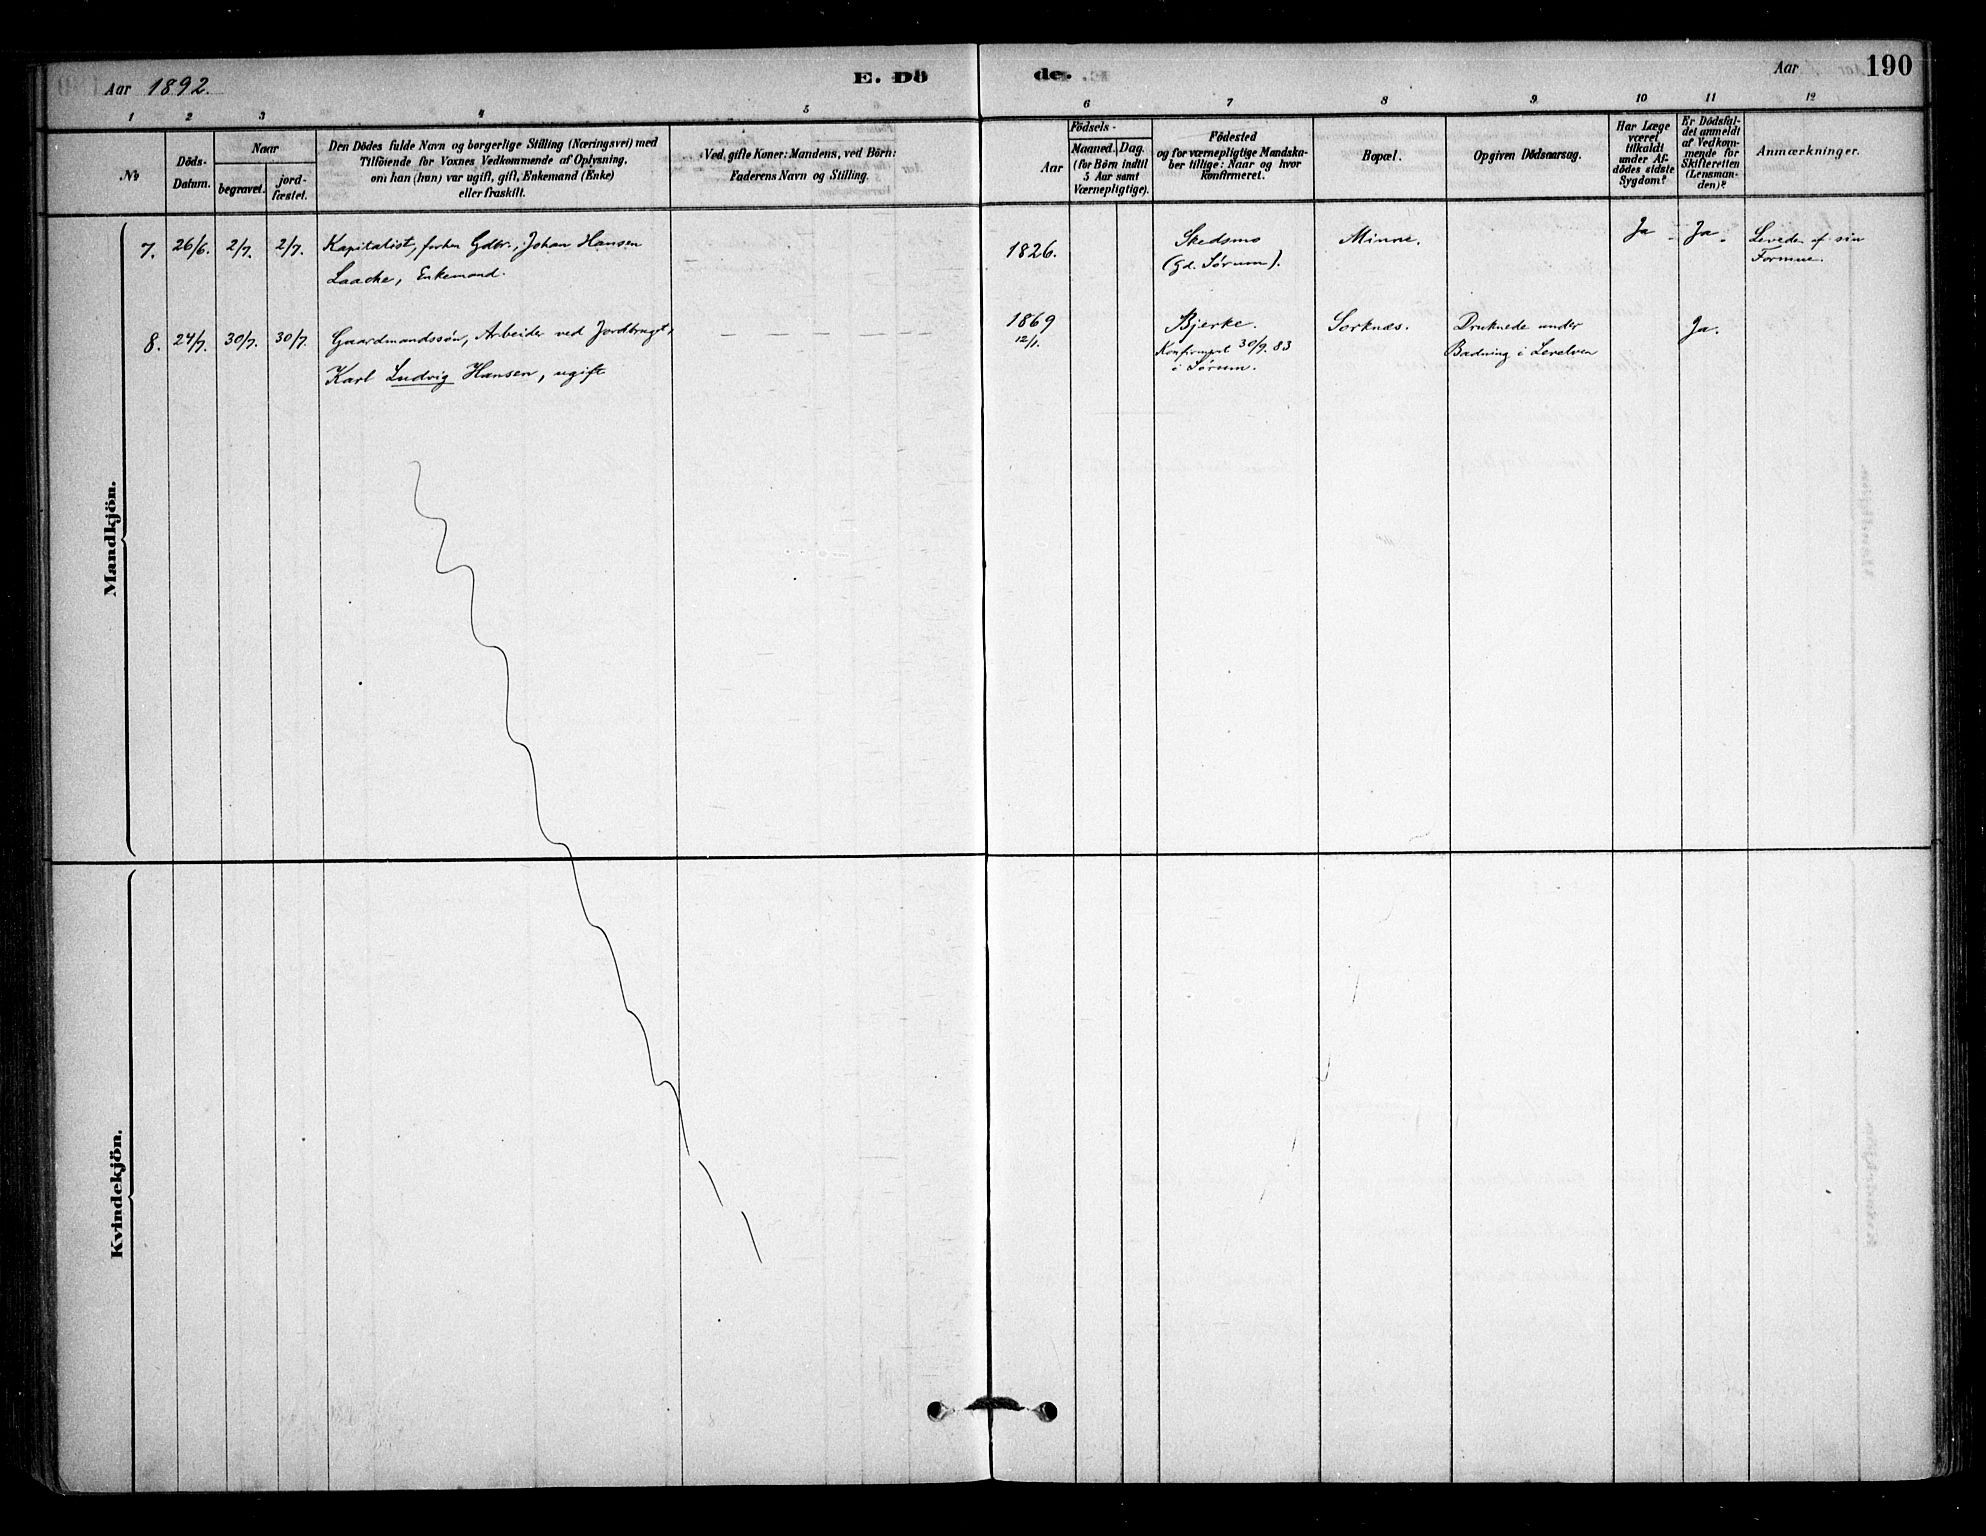 Aar 1892.
E. Dö
de.
Aar
190
1 2 3 4 5 6 7 8 9 10 11 12
No
Döds-
Datum.
Naar
begravet.
jord-
fæstet.
Den Dödes fulde Navn og borgerlige Stilling (Næringsvei) med
Tilföiende for Voxnes Vedkommende af Oplysning,
om han (hun) var ugift, gift, Enkemand (Enke)
eller fraskilt.
Ved gifte Koner: Mandens, ved Börn:
Faderens Navn og Stilling.
Födsels-
Aar
Maaned.
Dag.
(for Börn indtil
5 Aar samt
Værnepligtige).
Födested
og for værnepligtige Mandska-
ber tillige: Naar og hvor
Konfirmeret.
Bopæl.
Opgiven Dödsaarsag.
Har Læge
været
tilkaldt
under Af-
dödes sidste
Sygdom?
Er Dödsfal-
det anmeldt
af Vedkom-
mende for
Skifteretten
(Lensman-
den)?
Anmærkninger.
Mandkjön.
7. 26/6. 2/7. 2/7. Kapitalist, forhen Gdbr., Johan Hansen
Laache, Enkemand.
1826.
Skedsmo
(Gd. Sørum).
Minne.
Ja
Ja.
Levede af sin
Formue.
8. 24/7. 30/7. 30/7. Gaardmandssøn, Arbeider ved Jordbruget,
Karl Ludvig Hansen, ugift
— — — —
1869
12/1.
Bjerke.
Konfirmeret 30/9. 83
i Sørum.
Sorknæs.
Druknede under
Badning i Leirelven
Ja.
Kvindekjön.